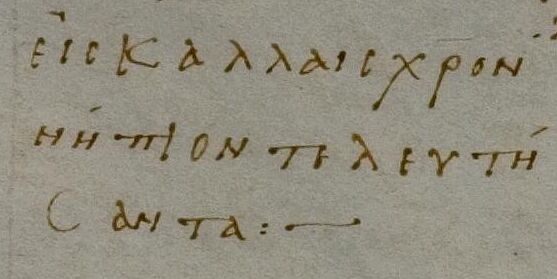 εἰς κάλλαισχρον
νήπιον τελευτή
σαντα:—